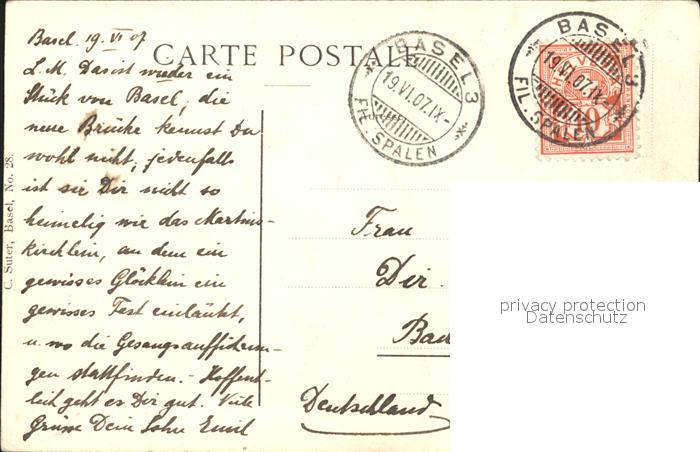 Basel 19 VI 07
CARTE POSTALE
L. M. Das ist wieder ein
Stück von Basel; die
neue Brücke kennst Du
wohl nicht, jedenfalls
ist sie Dir nicht so
heimelig wie das Martins-
kirchlein, an dem ein
gewisses Glöcklein ein
gewisses Fest einläutet,
u. wo die Gesangsaufführun-
gen stattfinden. - Hoffent-
lich geht es Dir gut. Viele
Grüsse Dein Sohn Emil
C. Suter, Basel, No. 28.
BASEL 3
19.VI.07.IX-
FIL. SPALEN
BASEL 3
19.VI.07.IX-
FIL. SPALEN
Frau
Dir.
Bad
Deutschland
privacy protection
Datenschutz